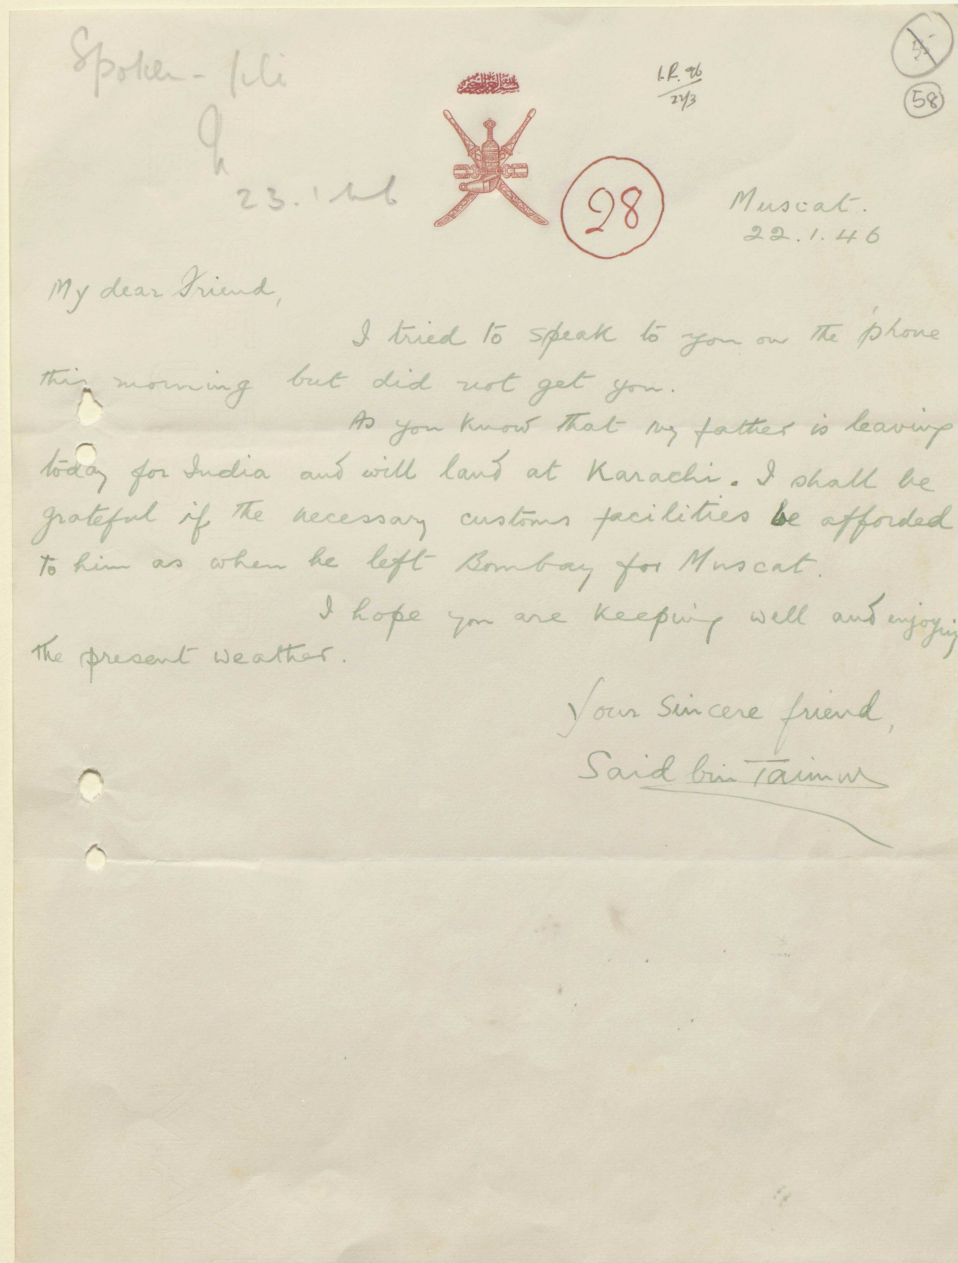 Spoken -
23.1.46
I.R. 96
22/3
58
28
Muscat.
22.1.46
My dear Friend,
I tried to speak to you on the 'phone
this morning but did not get you.
As you know that my father is leaving
today for India and will land at Karachi. I shall be
grateful if the necessary customs facilities be afforded
to him as when he left Bombay for Muscat.
I hope you are keeping well and enjoying
the present weather.
Your sincere friend,
Said bin Taimur